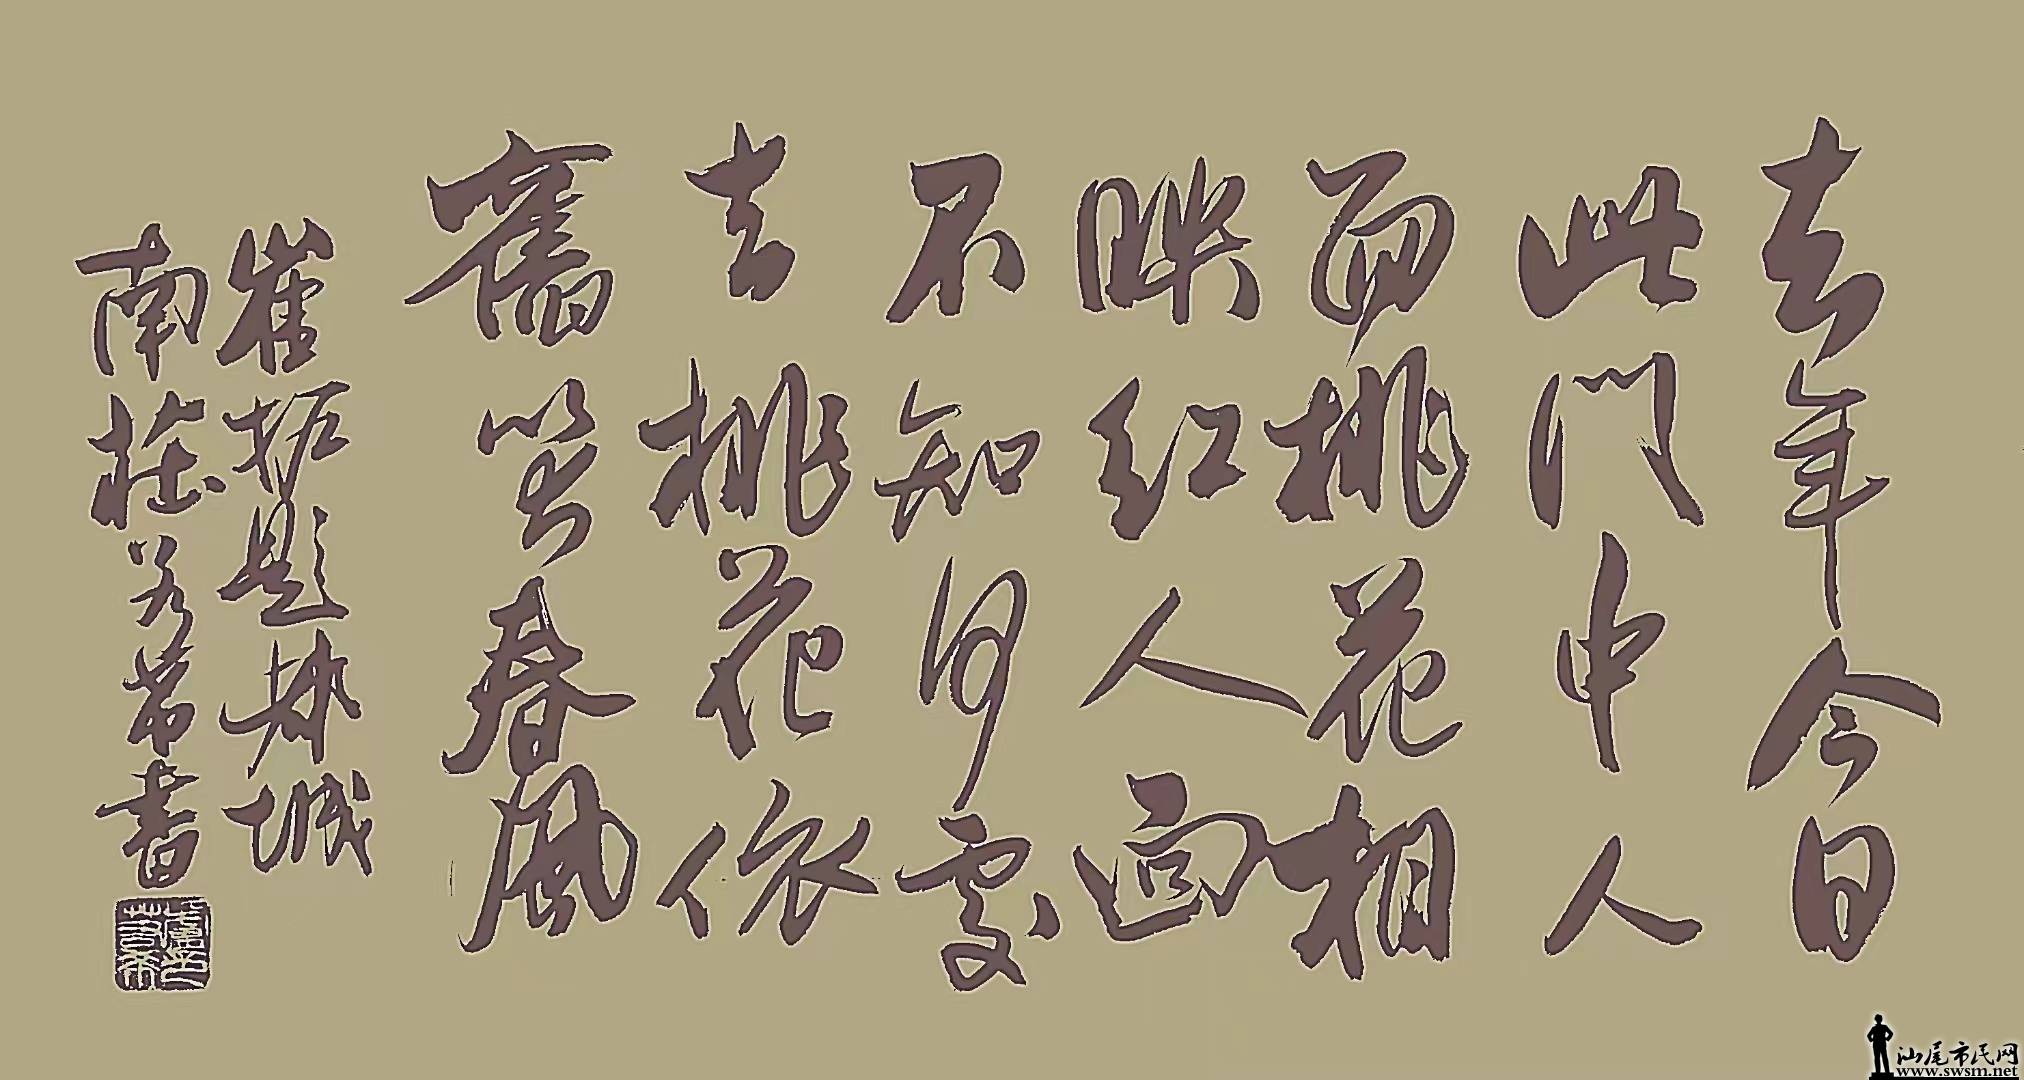 去年今日
此門中人
面桃花相
映红人面
不知何處
去桃花依
舊笑春風
崔护题都城
南莊 書
汕尾市民网
www.swsm.net